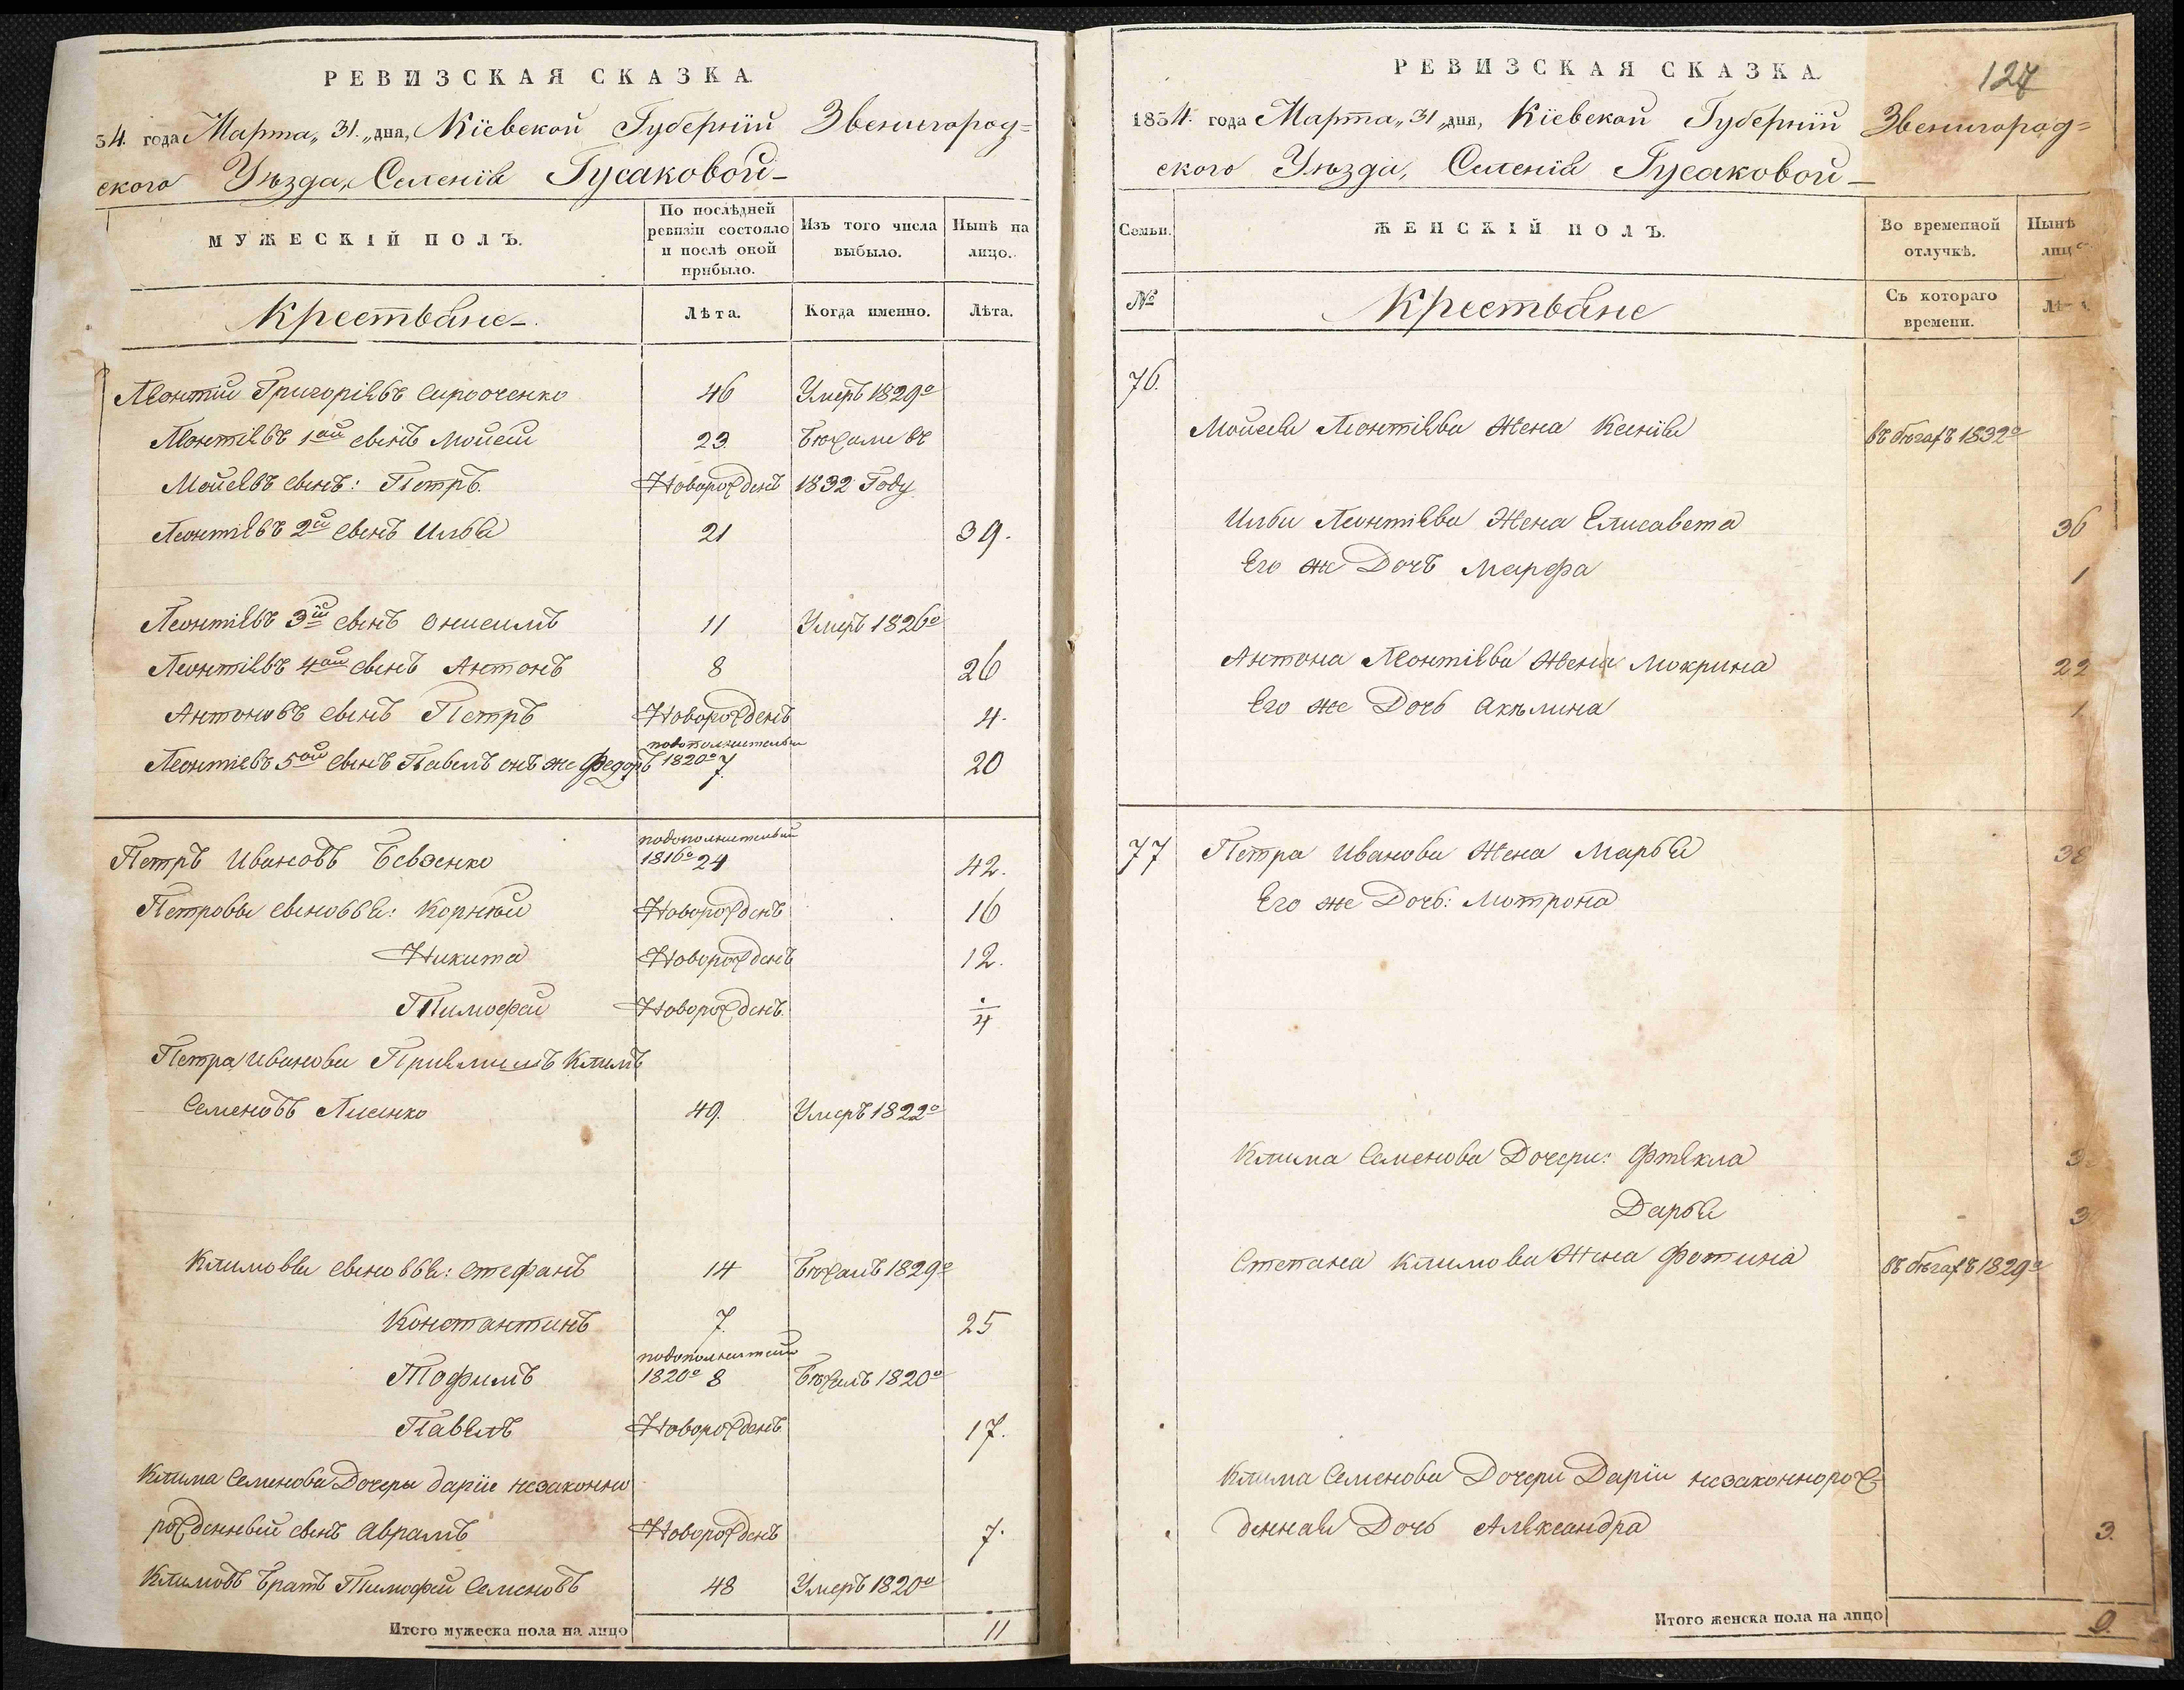 РЕВИЗСКАЯ СКАЗКА
34. года Марта „31.„ дна, Кіевской Губерніи Звенигород=
ского Уѣзда, Селенія Гусаковой-
МУЖЕСКІЙ ПОЛЪ.
По послѣдней ревизіи состояло и послѣ оной прибыло.
Изъ того числа выбыло.
Нынѣ на лицо.
Крестьяне
Лѣта.
Когда именно.
Лѣта.
Леонтій Григоріевъ 46 Умеръ 1829го
Леонтіевъ 1ой сынъ Мойсей 23. Бѣжали въ
Мойсеевъ сынъ: Петръ. Новорожденъ 1832 Году
Леонтіевъ 2й сынъ Илья 21 39.
Леонтіевъ 3ій сынъ Онисимъ 11 Умеръ 1826го
Леонтіевъ 4ой сынъ Антонъ 8 26
Антоновъ сынъ Петръ Новорожденъ 4.
Леонтіевъ 5ой сынъ Павелъ онъ же Федоръ 1820го 7. 20
Петръ Ивановъ Бевзенко 1816го 24 42.
Петровы сыновья: Корнѣй Новорожденъ 16
Никита Новорожденъ 12.
Тимофей Новорожденъ. 4
Петра Иванова Пріемышъ Климъ
Семеновъ Лисенко 49. Умеръ 1822го
Климовы сыновья: Стефанъ 14 Бѣжалъ 1829го
Константинъ 7. 25
Тофилъ 1820го 8 Бѣжалъ 1820го
Павелъ Новорожденъ 17.
Клима Семенова Дочеры Даріи незаконно
рожденный сынъ Аврамъ Новорожденъ 7.
Климовъ братъ Тимофей Семеновъ 48 Умеръ 1820го
Итого мужеска пола на лицо 11
127
РЕВИЗСКАЯ СКАЗКА.
1834. года Марта „31„ дня, Кіевской Губерніи Звенигород=
ского Уѣзда, Селенія Гусаковой-
Семьи.
ЖЕНСКІЙ ПОЛЪ.
Во временной отлучкѣ.
Нынѣ
лицо
№
Крестьяне
Съ котораго времени.
76.
Мойсея Леонтіева Жена Ксенія въ бѣгахъ 1832го
Ильи Леонтіева Жена Елисавета 36
Его же Дочъ Марфа 1
Антона Леонтіева Жена Мокрина 22
Его же Дочь Акѣлина 1
77 Петра Иванова Жена Марья 38
Его же Дочь: Мотрона
Клима Семенова Дочери: Фтекла
Дарья
Степана Климова Жена Фотина въ бѣгахъ 1829го
Клима Семенова Дочери Даріи незаконнорож-
денная Дочь Александра 3.
Итого женска пола на лицо 9.